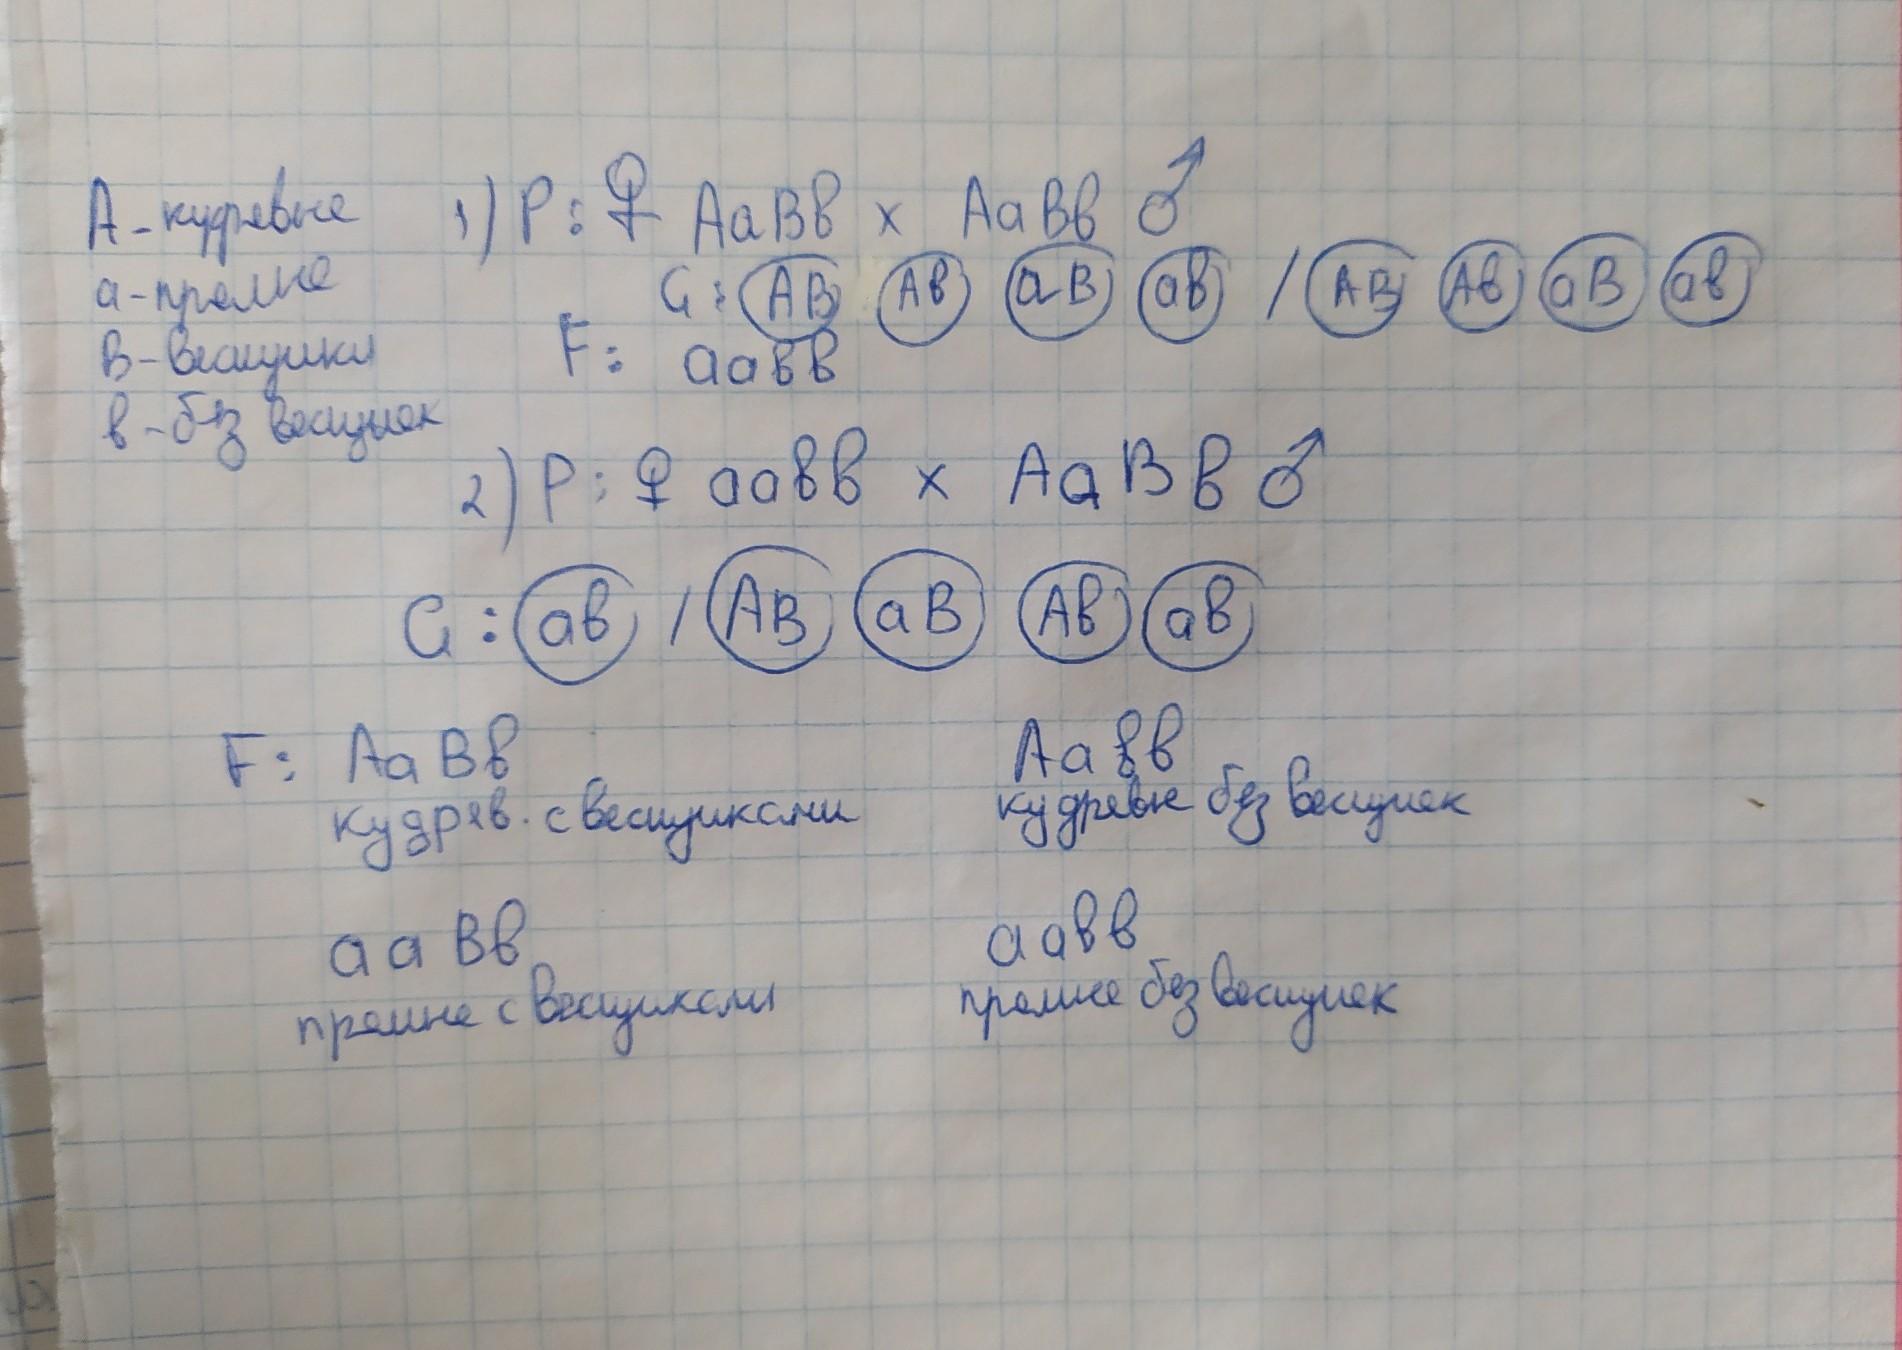 А - кудрявые
а - прямые
В - веснушки
в - без веснушек
1) P: ♀ АаВв х АаВв ♂
G: АВ Ав аВ ав / АВ Ав аВ ав
F: аавв
2) P: ♀ аавв х АаВв ♂
G: ав / АВ аВ Ав ав
F: АаВв Аавв
кудряв. с веснушками кудрявые без веснушек
ааВв аавв
прямые с веснушками прямые без веснушек